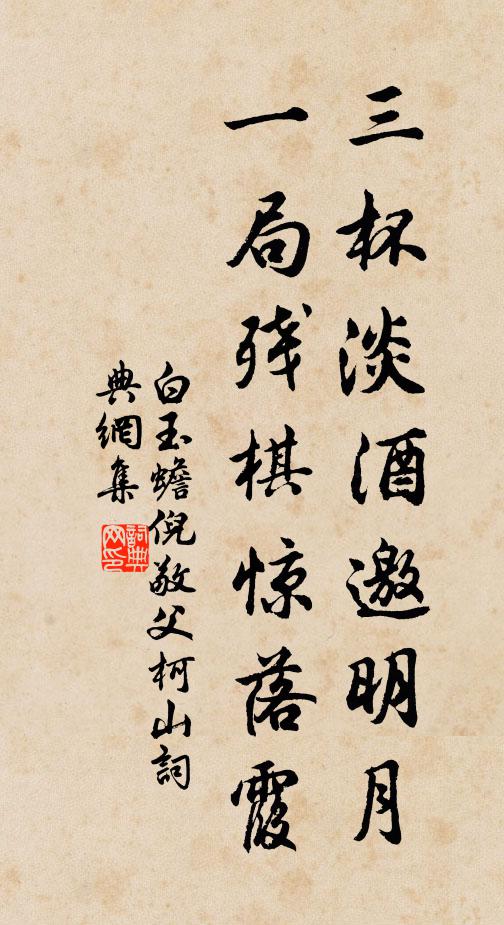 三杯淡酒邀明月
一局残棋惊落霞
白玉蟾倪敬父柯山詞
典網集
詞典
网印